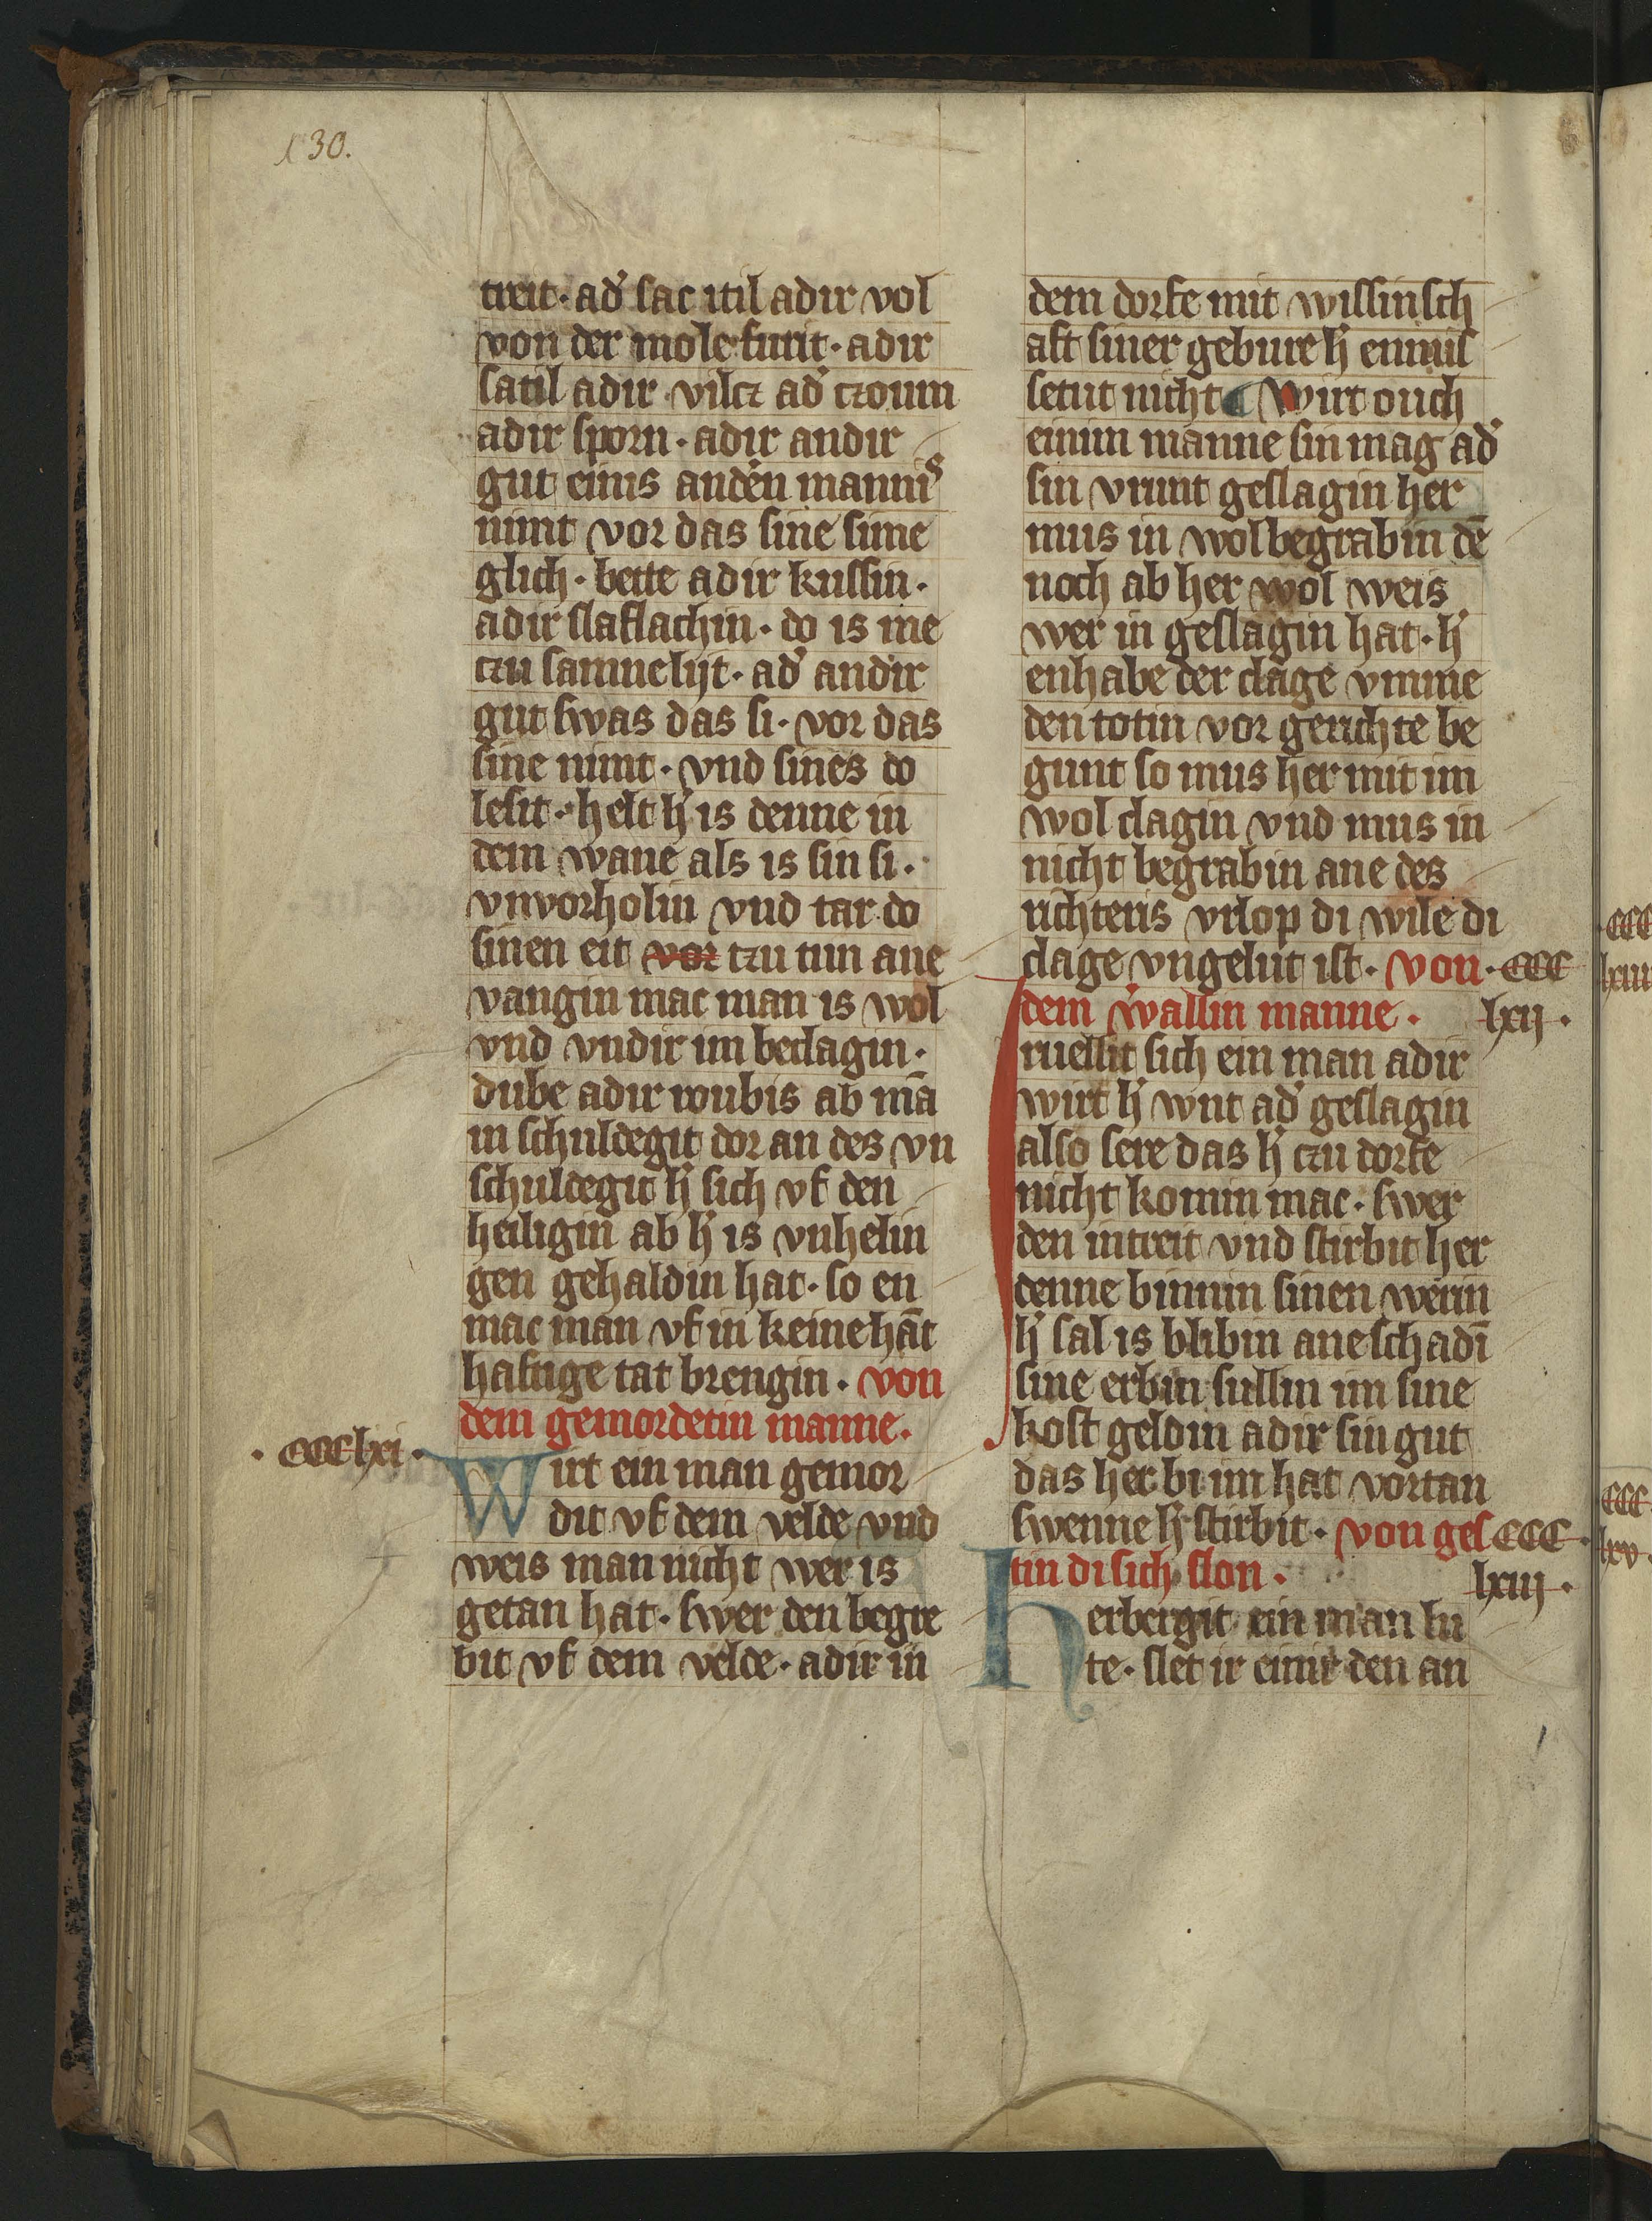 130.
treit · ad' sac itil adir vol
von der mole furit · adir
satil adir vilcz ad' czoum
adir sporn · adir andir
gut einis andĕn mannis
nimt vor das sine sime
glich · bette adir kussin ·
adir slaflachin · do is me
czu samnelijt · ad' andir
gut swas das si · vor das
sine nimt · vnd sines do
lesit · helt h' is denne in
dem wane als is sin si ·
vnvorholin vnd tar do
sinen eit vor czu tun ane
vangin mac man is wol
vnd vndir im beclagin ·
dube adir roubis ab mā
in schuldegit dor an des vn
schuldegit h' sich vf den
heiligin ab h' is vnhelin
gen gehaldin hat · so en
mac man vf in keine hāt
haftige tat brengin · von
dem gemordetin manne ·
· CCC lxi ·
Wirt ein man gemor
dit vf dem velde vnd
weis man nicht wer is
getan hat · swer den begre
bit vf dem velde · adir in
dem dorfe mit wissinsch
aft siner gebure h' enmis
setut nicht Wirt ouch
einim manne sin mag ad'
sin vrunt geslagin her
mus in wol begrabin dē
noch ab her wol weis
wer in geslagin hat · h'
enhabe der clage vmme
den totin vor gerichte be
gunt so mus her mit im
wol clagin vnd mus in
nicht begrabin ane des
richteris vrlop di wile di
clage vngelut ist · von · CCC
dem wallin manne · lxij ·
ruessit sich ein man adir
wirt h' wnt ad' geslagin
also sere das h' czu dorfe
nicht komin mac · swer
den intreit vnd stirbit her
denne binnin sinen werin
h' sal is blibin ane schadī
sine erbin sullin im sine
kost geldin adir sin gut
das her bi im hat vortan
swenne h' stirbit · von ges CCC ·
tin di sich slon · lxiij ·
Herbergit ein man lu
te · slet ir einir den an